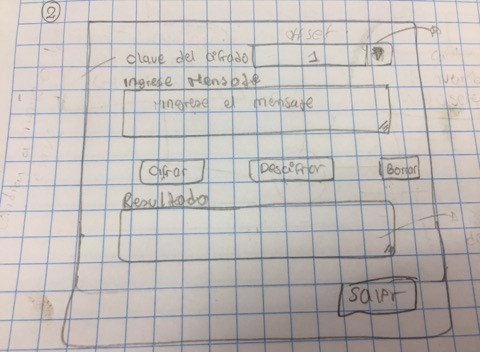 2
offset
clave del cifrado 1
Ingrese Mensaje
Ingrese el mensaje
Cifrar Descifrar Borrar
Resultado